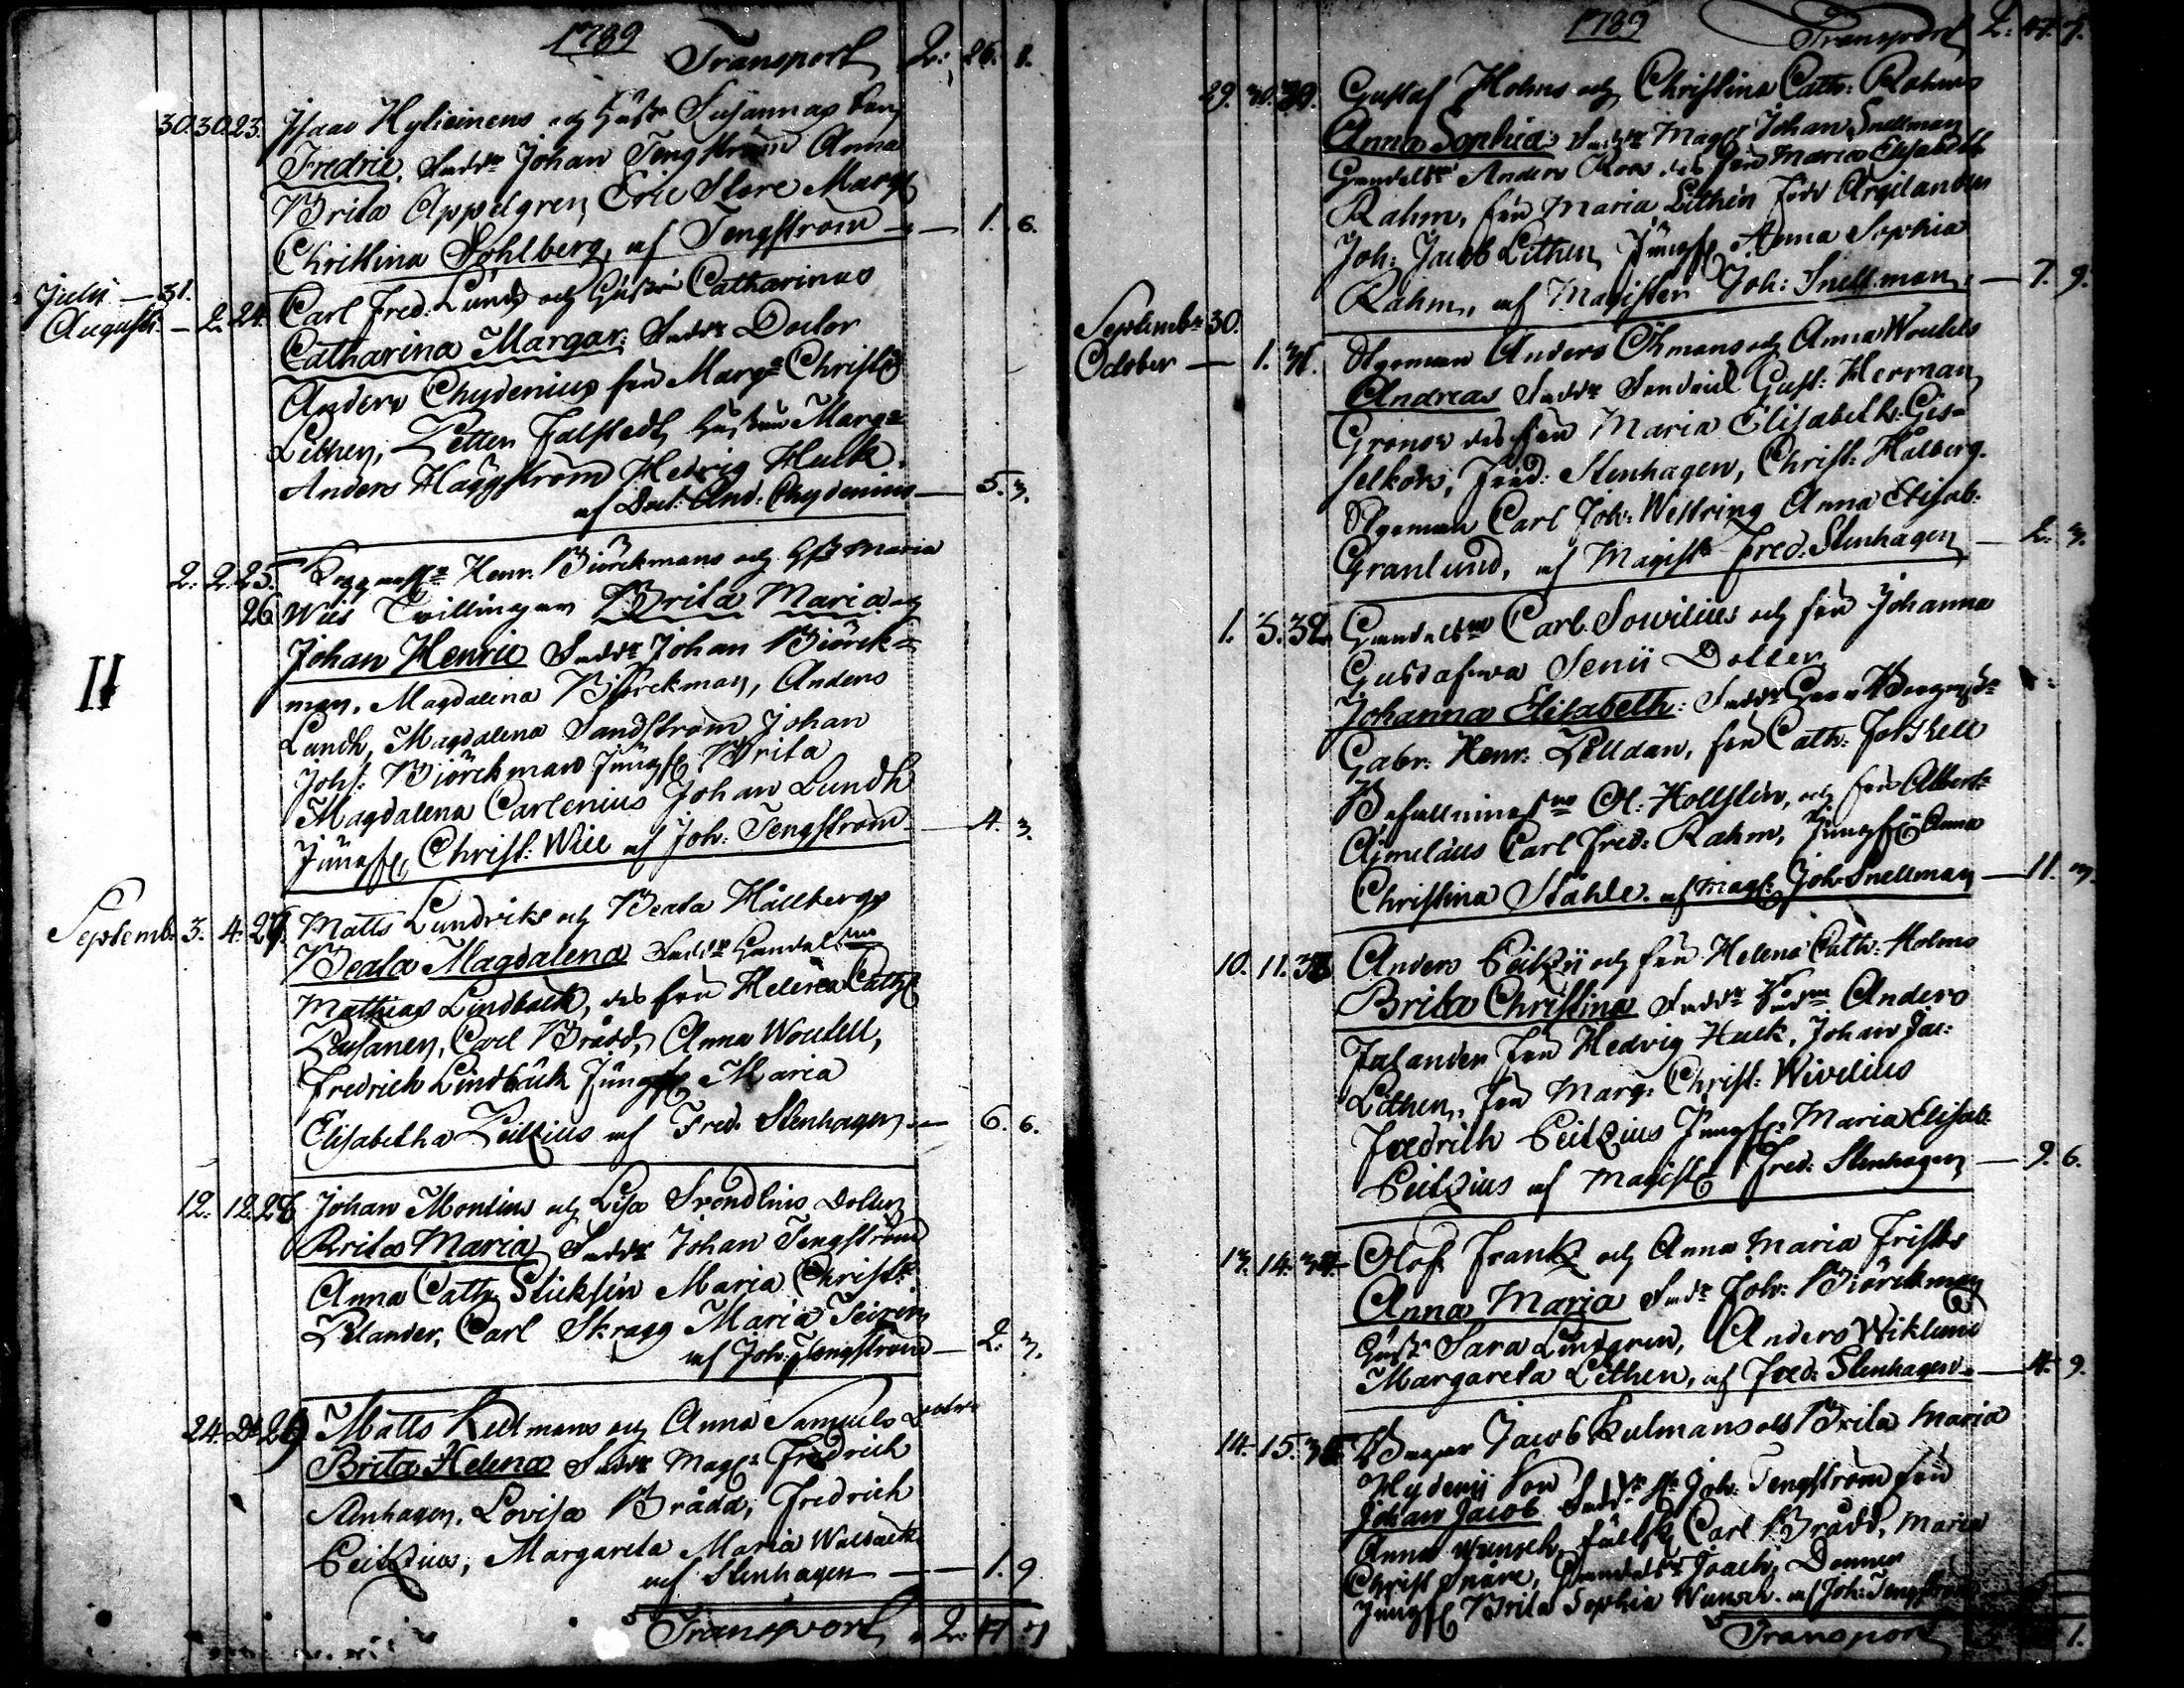 1789
Transport 2. 26. 1.
30. 30. 23. Isaac Hylicinens och Hust. Susannas
Fredric. Sudd. Johan Tengström Anna
Brita Appelgren, Eric Store Marg
Christina Sohlberg, af Tengström — 1. 6.
Julii — 31.
Augusti — 2. 24. Carl Fred. Lunds och Hustr. Catharinas
Catharina Margar: Sudd. Doctor
Anders Chydenius fru Marg. Christ
Lithen, Petter Falstedt, hustrun Marg.
Anders Häggström Hedvig Huck
af Doct: And: Chydenius — 5. 3.
2. 2. 25. Henr. Björckmans och Hst. Maria
26. Wiis Tvillingar Brita Maria och
Johan Henric Sudd. Johan Björck-
man, Magdalena Björckman, Anders
Lundh, Magdalena Sandström Johan
Joh: Björckman Jungf. Brita
Magdalena Carlenius Johan Lundh
Jungf. Christ: Wiee af Joh: Tengström — 4. 3.
Septemb. 3. 4. 27. Matts Lundviks och Beata Hällbergs
Beata Magdalena Sudd. Handelsm
Mathias Lindbäck, des fru Helena Cath
Carl Brådd, Anna Woutell,
Fredrich Lindbäck Jungf. Maria
Elisabetha Peitzius af Fred. Stenhagen — 6. 6.
12. 12. 28. Johan Montins och Lisa Svendlins Dotter
Brita Maria Sudd. Johan Tengström
Anna Cath. Sticksén Maria Christ.
Carl Skragg Maria
af Joh: Tengström — 2. 3.
24. 29. Matts Kellmans och Anna Samuels Dotter
Brita Helena Sudd. Mag: Fredrich
Stenhagen, Lovisa Brådd, Fredrich
Peitzius, Margareta Maria
af Stenhagen — 1. 9.
Transport 2. 47. 7.
1789
Transport 2. 47. 7.
29. 30. Gustaf Holms och Christina Cath: Rahms
Anna Sophia: Sudd. Mag. Johan Snellman
Handelsm Anders Roos des fru Maria Elisabeth
Rahm, fru Maria Lithén född Argilander
Joh: Jacob Lithen, Jungf. Anna Sophia
Rahm, af Magister Joh: Snellman — 7. 9.
Septemb. 30.
October — 1. 31. Anders Öhmans och Anna Woutels
Andreas Sudd. Gust: Herman
Gronow des fru Maria Elisabeth: Gis-
selkors, Fred: Stenhagen, Christ: Halberg.
Carl Joh: Westring Anna Elisab:
Granlund, af Magist. Fred: Stenhagen — 2. 3.
1. 3. 32. Handelsm Carl Sovelius och fru Johanna
Gustafwa Senii Dotter
Johanna Elisabeth: Sudd.
Gabr: Henr: Pelldan, fru Cath: Forskell
Befallningsm Ol: Hollsten, och fru Albert.
Ajmelæus Carl Fred: Rahm, Jungfru Anna
Christina Ståhle. af Mag: Joh: Snellman — 11. 3.
10. 11. 33. Anders Peitzii och fru Helena Cath: Holms
Brita Christina Sudd. Anders
Falander fru Hedvig Huck, Johan Jac:
Lithen, fru Marg: Christ: Wivelius
Fredrich Peitzius Jungf: Maria Elisab.
Peitzius af Magist. Fred. Stenhagen — 9. 6.
13. 14. 34. Olof Frantz och Anna Maria Frisks
Anna Maria Sudd. Joh: Björckman
Hust. Sara Lindgren, Anders Wiklund
Margareta Lithen, af Fred. Stenhagen — 4. 9.
14. 15. 35. Borgar Jacob Kulmans och Brita Maria
Hydenij Son
Johan Jacob Sudd. H. Joh: Tengström fru
Anna Wunsch, Carl Brådd, Maria
Christ Snåre, Handelsm Joach: Donner
Jungf. Brita Sophia Wunsch. af Joh: Tengström
Transport 1.